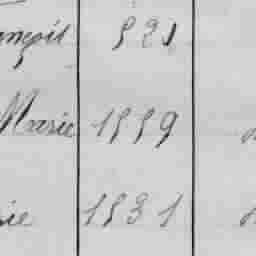 ançois 821
Marie 1889
rie 1831